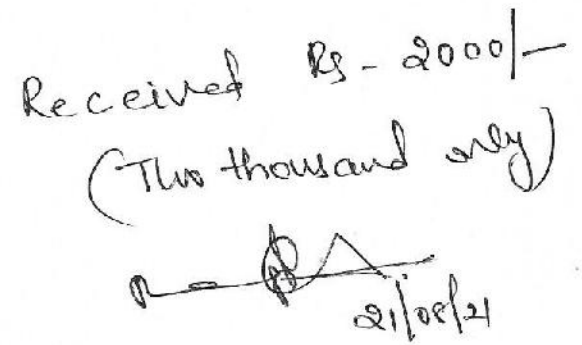 Received Rs - 2000/-
(Two thousand only)
21/08/21